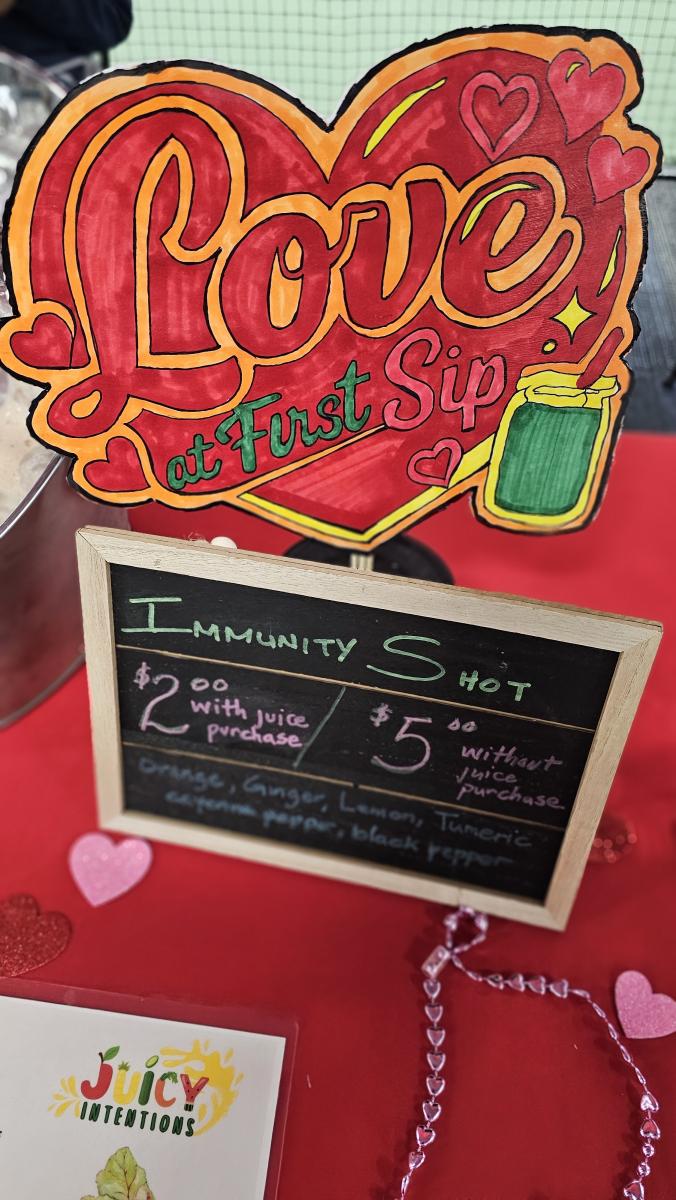 Love
at First Sip
IMMUNITY SHOT
$2.00 with juice purchase / $5.00 without juice purchase
Orange, Ginger, Lemon, Tumeric
cayenne pepper, black pepper
JUICY
INTENTIONS